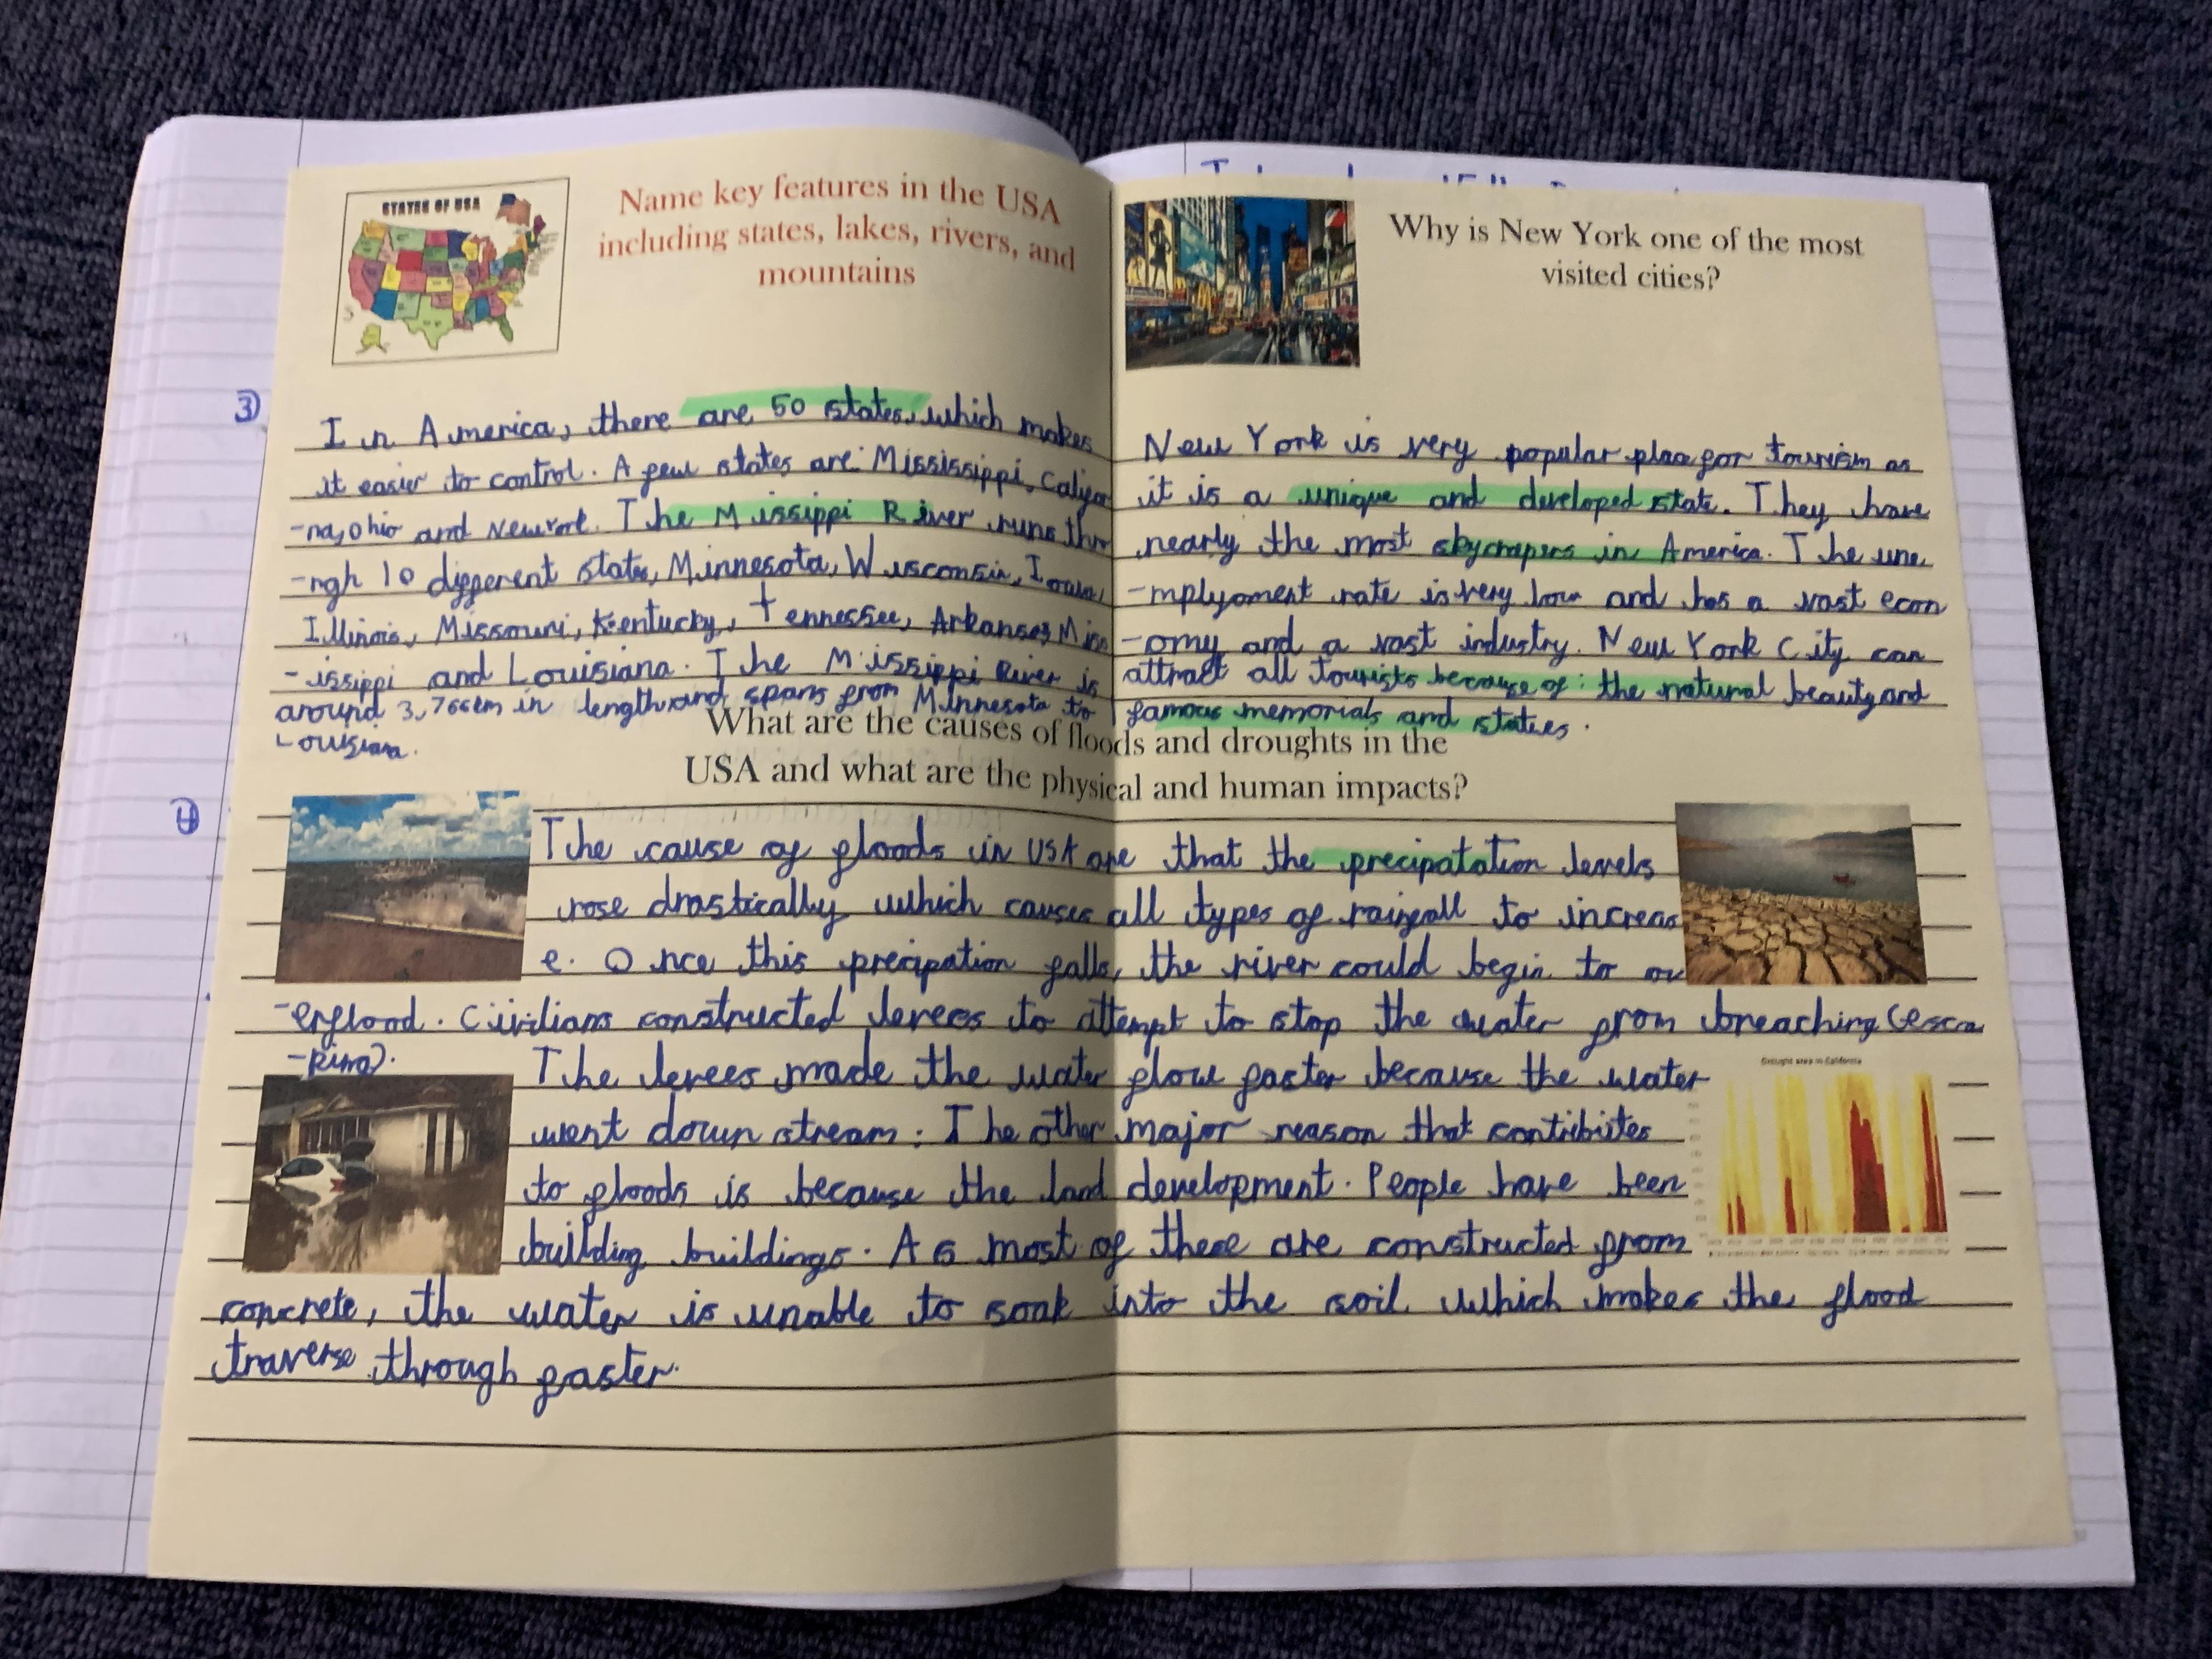 STATES OF USA
Name key features in the USA
including states, lakes, rivers, and
mountains
3
In America, there are 50 states, which makes
it easier to control. A few states are: Mississippi, Califor
-na, Ohio and New York. The Missippi River runs thro
-ugh 10 different states, Minnesota, Wisconsin, Iowa,
Illinois, Missouri, Kentucky, Tennessee, Arkansas, Miss
-issippi and Louisiana. The Missippi River is
around 3,766km in length and spans from Minnesota to
Louisiana.
Why is New York one of the most
visited cities?
New York is very popular place for tourism as
it is a unique and developed state. They have
nearly the most skycrapers in America. The une
-mplyoment rate is very low and has a vast econ
-omy and a vast industry. New York City can
attract all tourists because of: the natural beauty and
famous memorials and statues.
What are the causes of floods and droughts in the
USA and what are the physical and human impacts?
4
The cause of floods in USA are that the precipatation levels
rose drastically which causes all types of rainfall to increas
e. Once this precipation falls, the river could begin to ov
-erflood. Civilians constructed levees to attempt to stop the water from breaching (esca
-ping).
Drought area in California
The levees made the water flow faster because the water
went down stream. The other major reason that contributes
to floods is because the land development. People have been
building buildings. As most of these are constructed from
concrete, the water is unable to soak into the soil which makes the flood
traverse through faster.